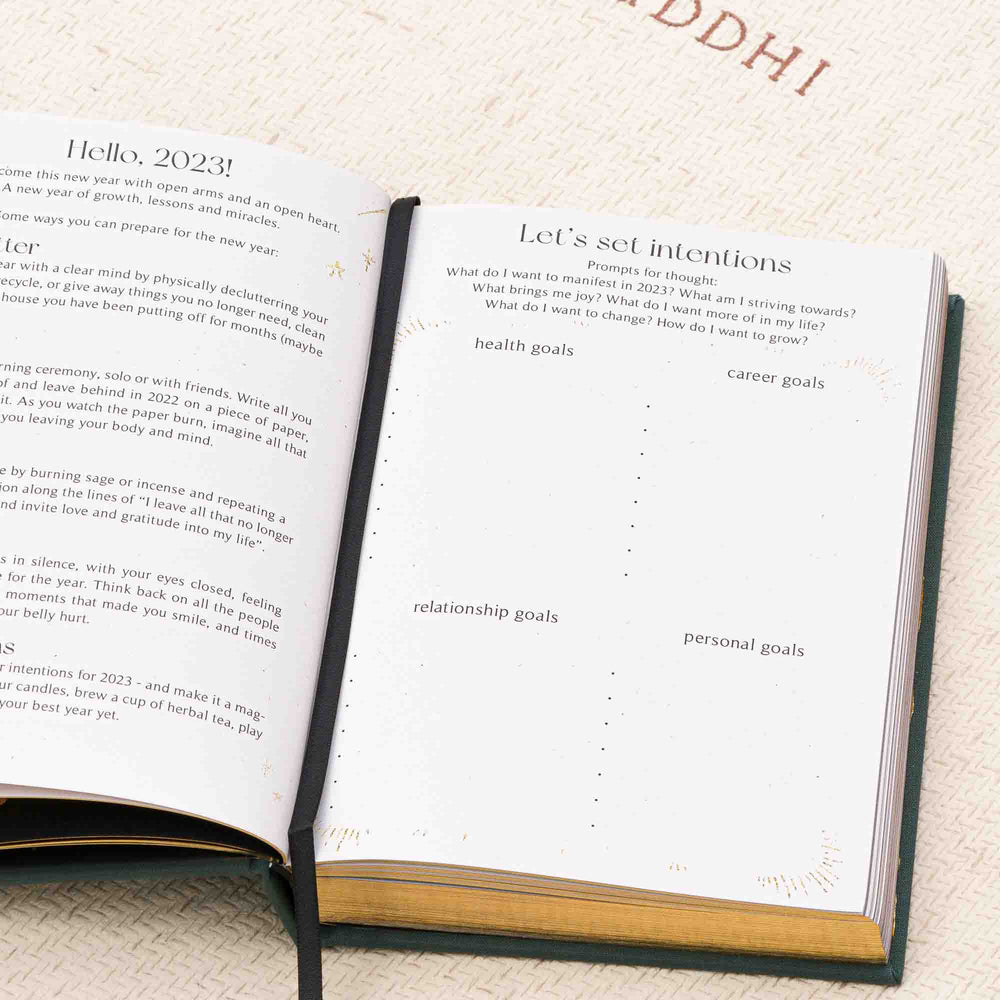 DDHI
Hello, 2023!
come this new year with open arms and an open heart.
A new year of growth, lessons and miracles.
Some ways you can prepare for the new year:
tter
ear with a clear mind by physically decluttering your
recycle, or give away things you no longer need, clean
house you have been putting off for months (maybe
rning ceremony, solo or with friends. Write all you
of and leave behind in 2022 on a piece of paper,
it. As you watch the paper burn, imagine all that
you leaving your body and mind.
e by burning sage or incense and repeating a
ion along the lines of “I leave all that no longer
nd invite love and gratitude into my life”.
s in silence, with your eyes closed, feeling
e for the year. Think back on all the people
moments that made you smile, and times
our belly hurt.
ns
r intentions for 2023 - and make it a mag-
ur candles, brew a cup of herbal tea, play
your best year yet.
Let’s set intentions
Prompts for thought:
What do I want to manifest in 2023? What am I striving towards?
What brings me joy? What do I want more of in my life?
What do I want to change? How do I want to grow?
health goals
career goals
relationship goals
personal goals